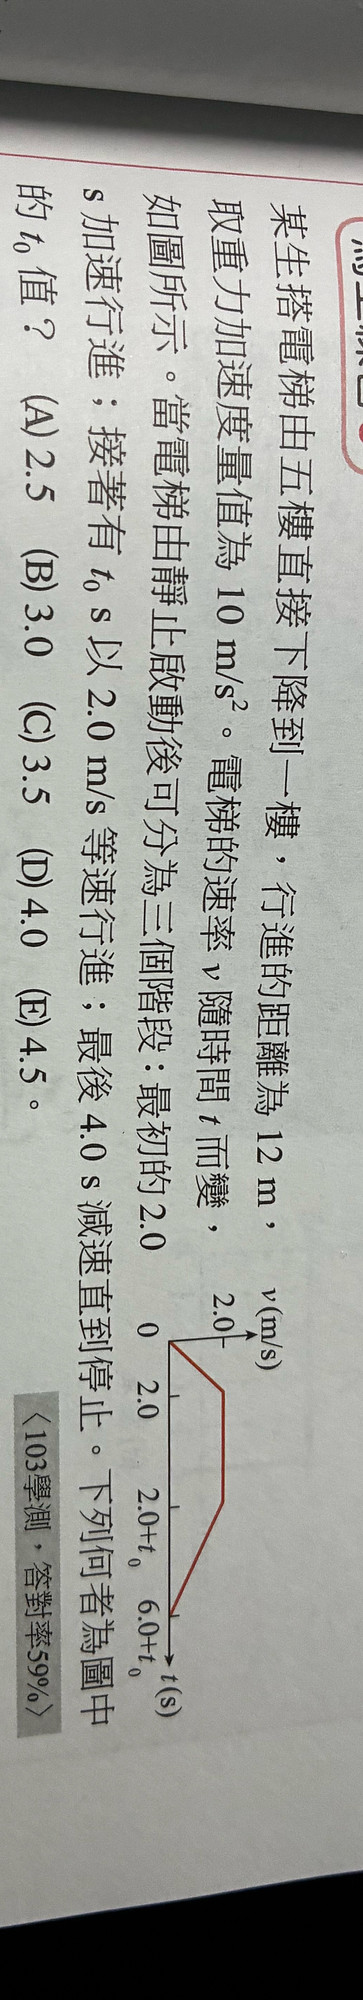 某生搭電梯由五樓直接下降到一樓，行進的距離為 12 m，
取重力加速度量值為 10 m/s²。電梯的速率 v 隨時間 t 而變，
如圖所示。當電梯由靜止啟動後可分為三個階段：最初的 2.0
s 加速行進；接著有 t₀ s 以 2.0 m/s 等速行進；最後 4.0 s 減速直到停止。下列何者為圖中
的 t₀ 值？ (A) 2.5 (B) 3.0 (C) 3.5 (D) 4.0 (E) 4.5。
〈103學測，答對率59%〉
v(m/s)
2.0
0 2.0 2.0+t₀ 6.0+t₀
t(s)